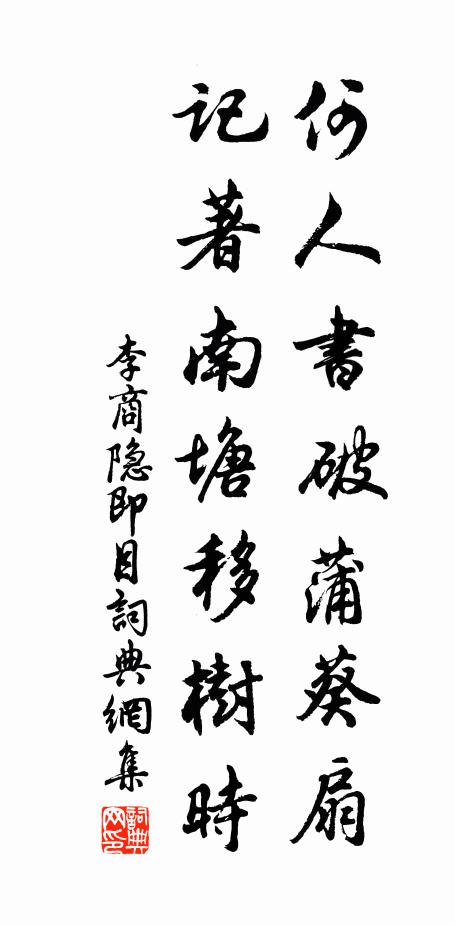 何人書破蒲葵扇
記著南塘移樹時
李商隐即目詞典網集
詞典网印